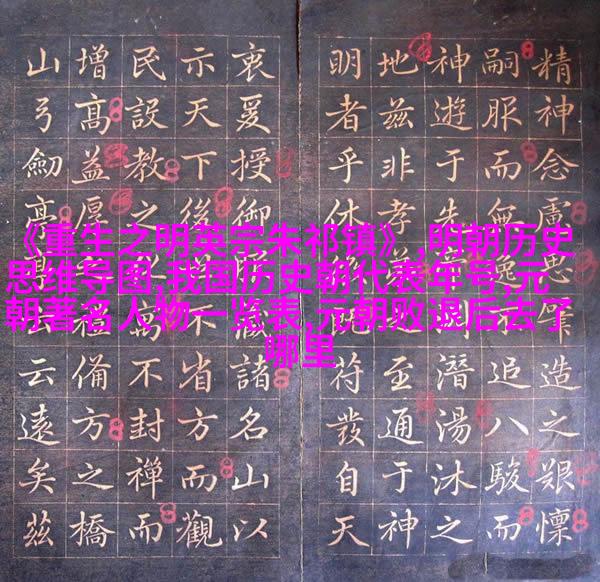 《重生之明英宗朱祁镇》,明朝历史
思维导图,我国历史朝代表年号,元
朝著名人物一览表,元朝败退后去了
哪里
精神念慮造之艱懍
嗣服而無追八駿而
神遊于先潛湯沐之
地茲非孝至通于神
明者乎休符發自天
衷爰授御諸名山以
示天下後省方而觀
民設教之不封禪而
增高益厚備方之橋
山弓劍云遠矣茲